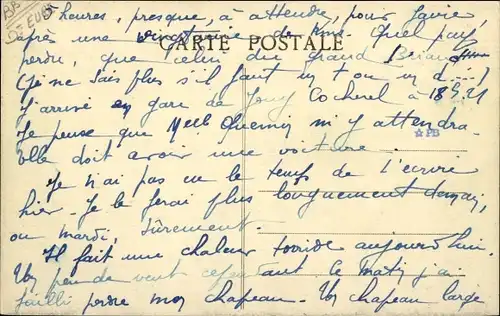 2 heures, presque, à attendre, pour l'avoir,
après une vingtaine de kms. Quel pays
CARTE POSTALE
perdu, que celui du grand Briand
(je ne sais plus s'il faut un t ou un d ---)
J'arrive en gare de Jouy Cocherel à 18h.21
Je pense que Melle Quemin m'y attendra
PB
elle doit avoir une voiture.
Je n'ai pas eu le temps de t'écrire
hier. Je le ferai plus longuement demain,
ou mardi, sûrement.
Il fait une chaleur torride aujourd'hui.
Un peu de vent cependant. Ce matin j'ai
failli perdre mon chapeau. Un chapeau large